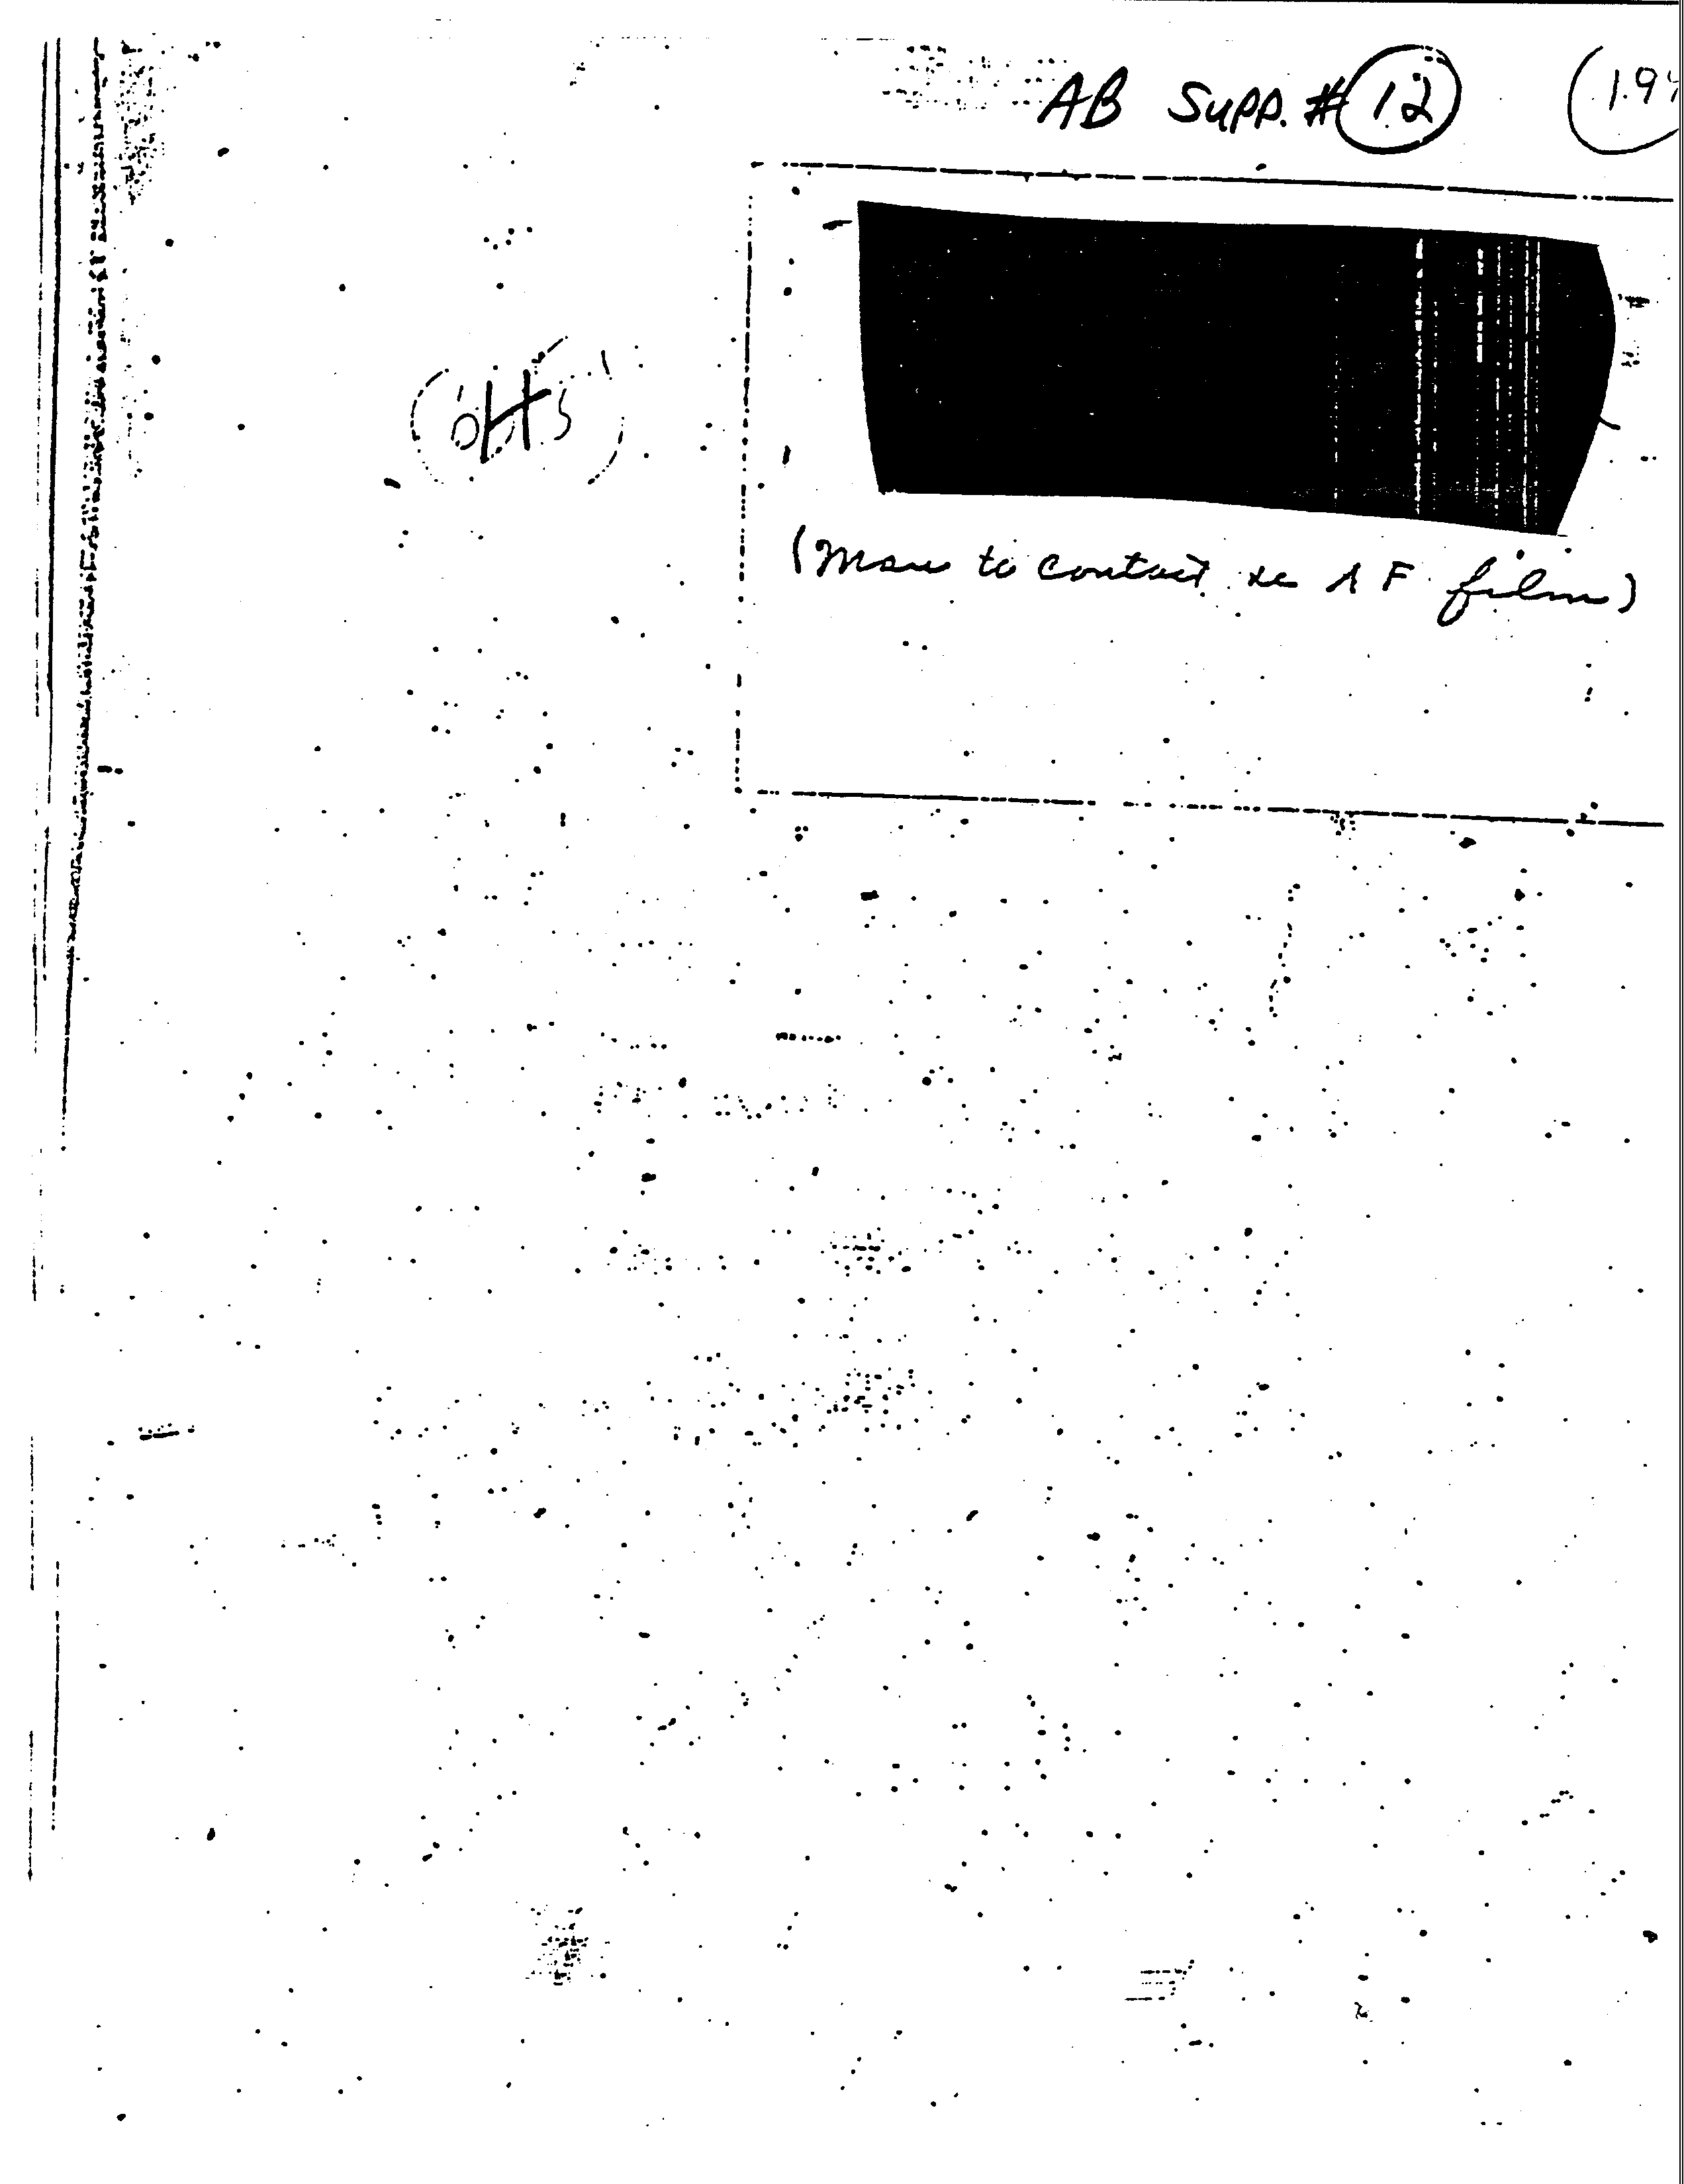 AB SUPP. # 12
(Man to contact re AF film)